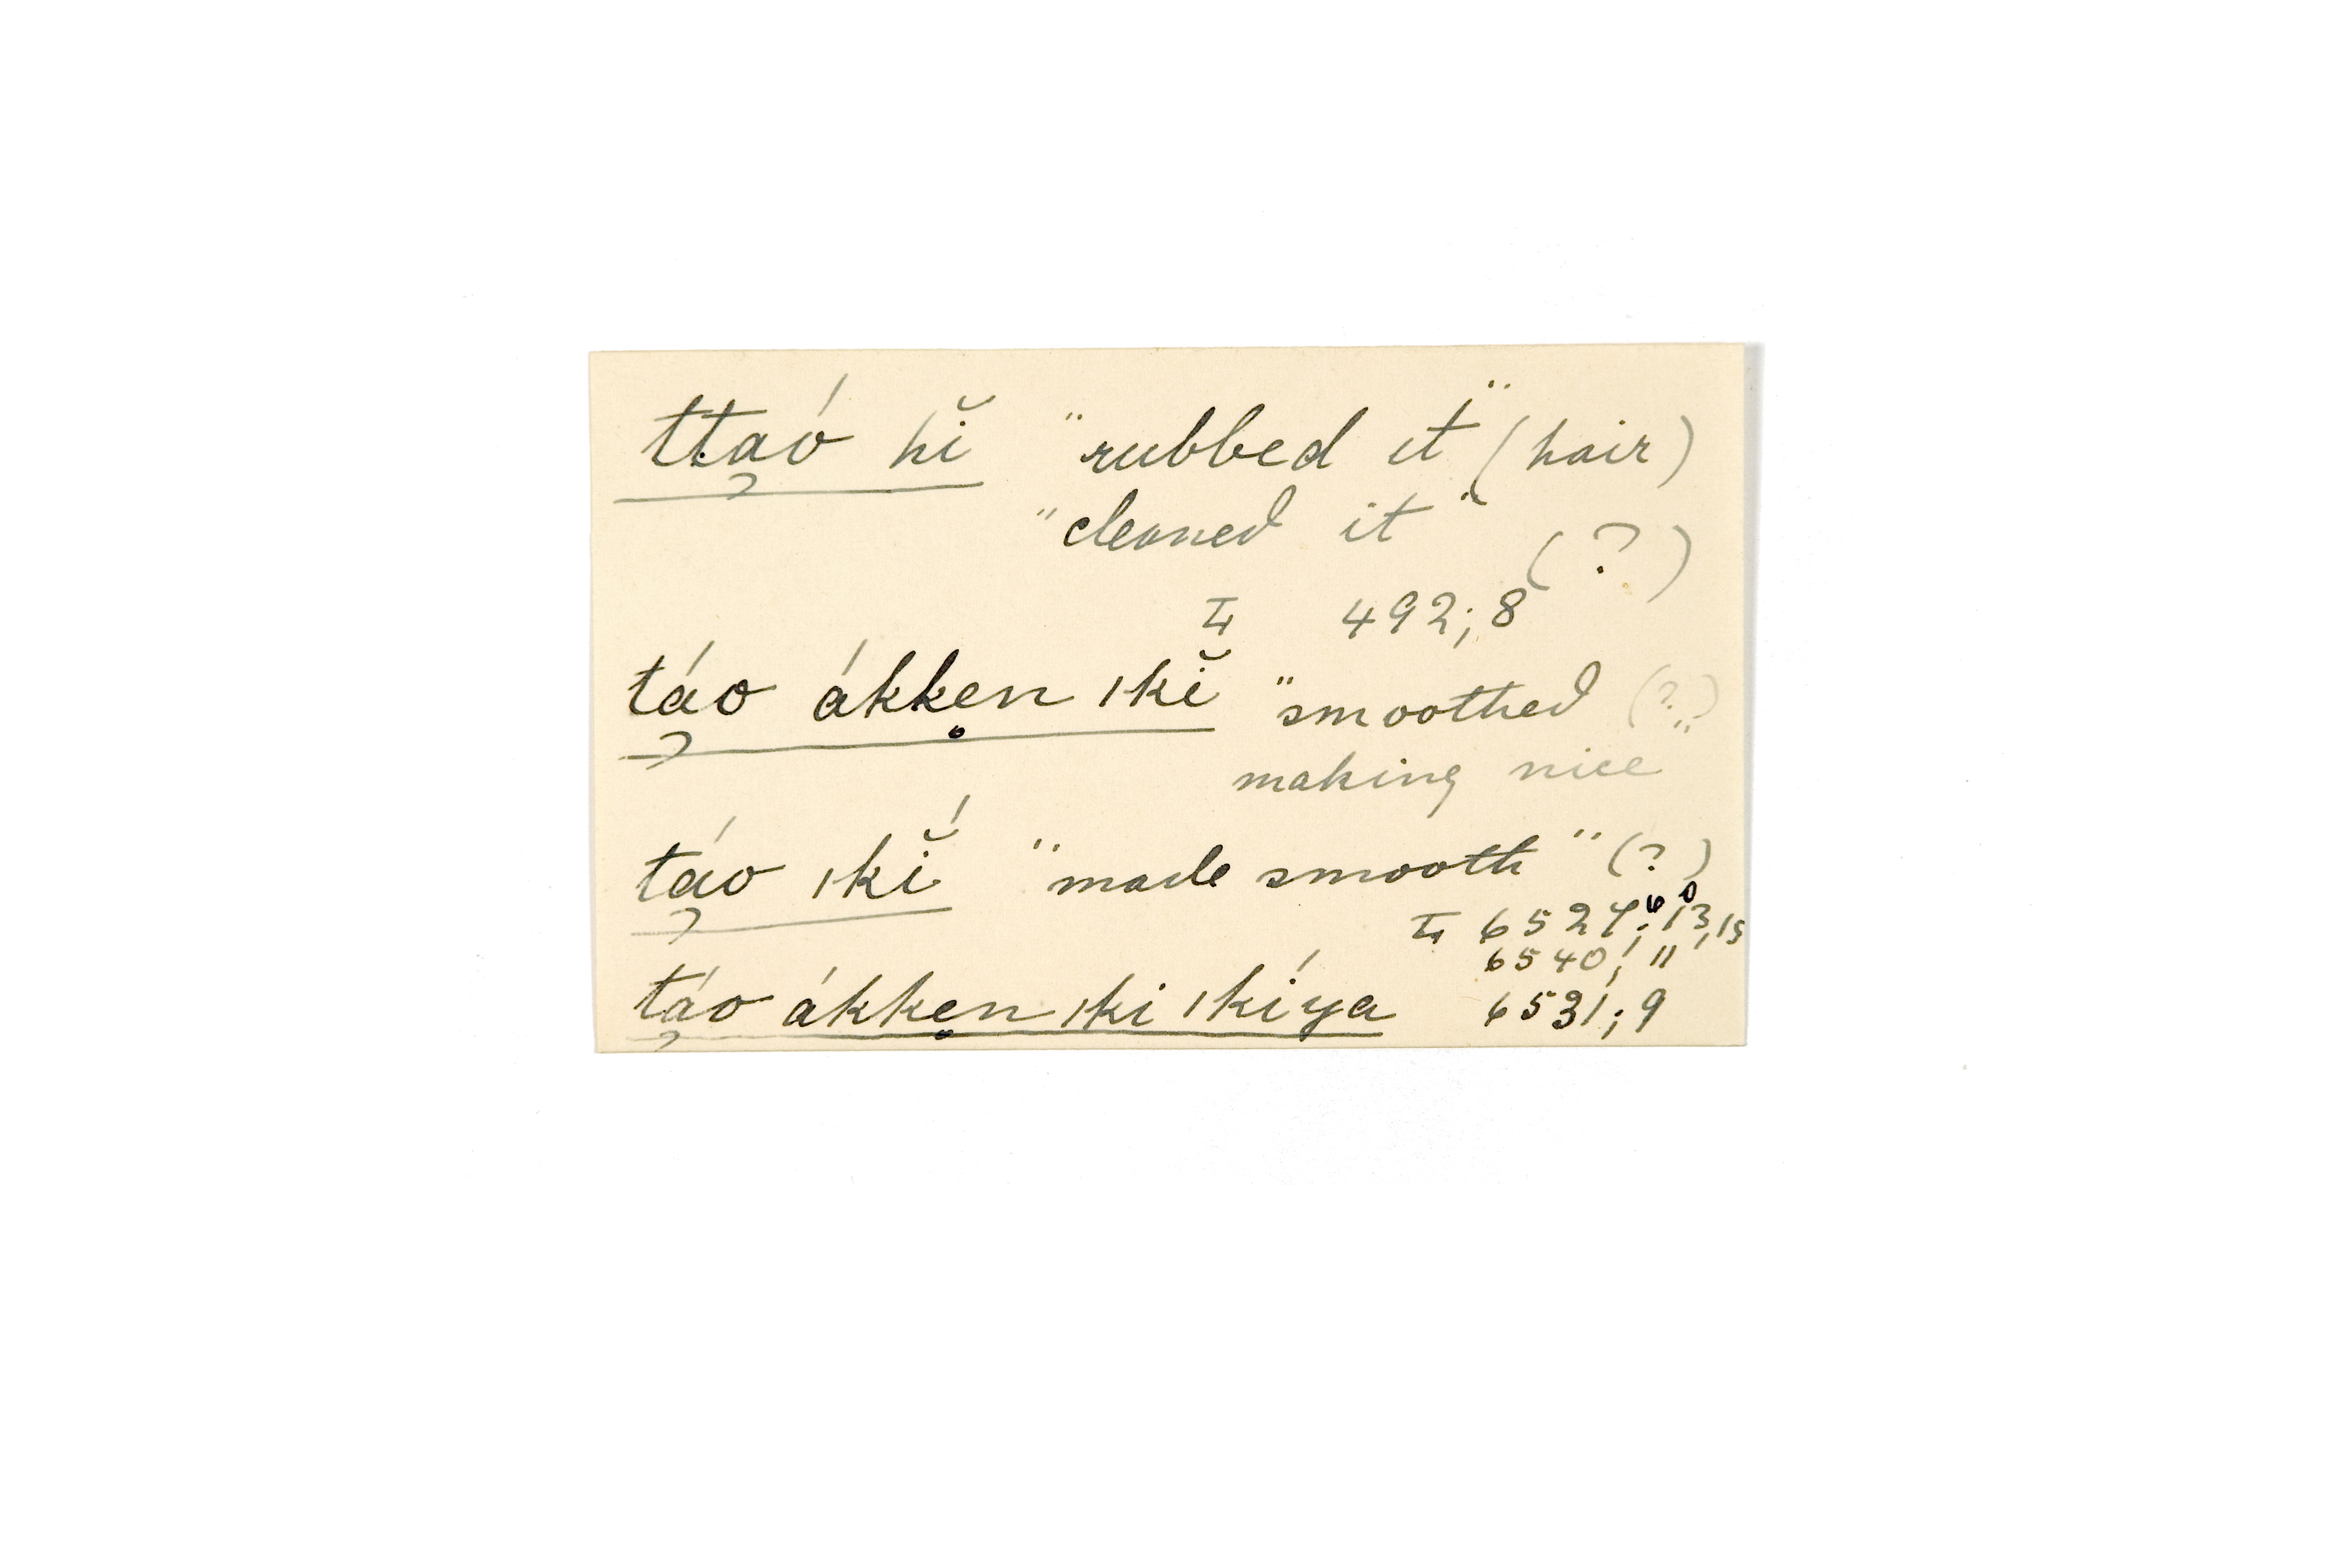 ttą́ó hĭ "rubbed it" (hair)
"cleaned it"
(?)
I 492;8
tą́o ákkẹn ıkĭ "smoothed (?)"
making nice
tą́o ıkĭ́ "made smooth" (?)
6540; 11
tą́o ákkẹn ıki ıkíya 6531; 9